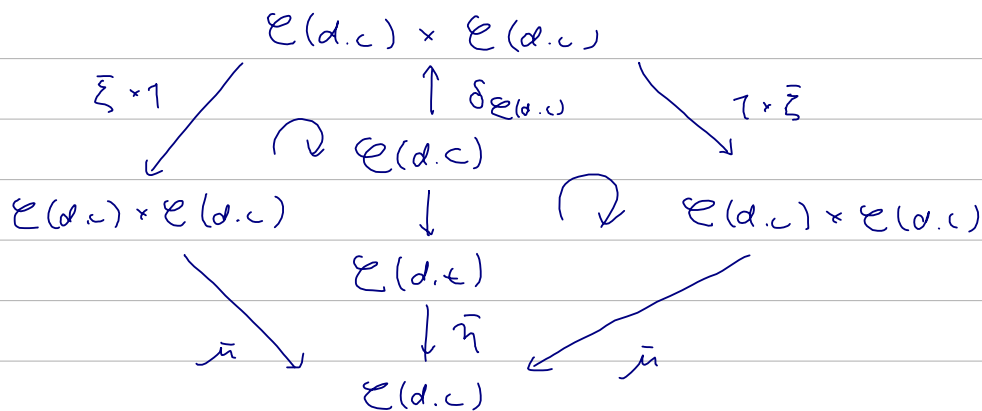 𝒞(d.c) × 𝒞(d.c)
ξ̄ × 1 ↑ δ𝒞(d.c) 1 × ξ̄
𝒞(d.c)
𝒞(d.c) × 𝒞(d.c) ↓ 𝒞(d.c) × 𝒞(d.c)
𝒞(d.t)
μ̄ ↓ η̄ μ̄
𝒞(d.c)